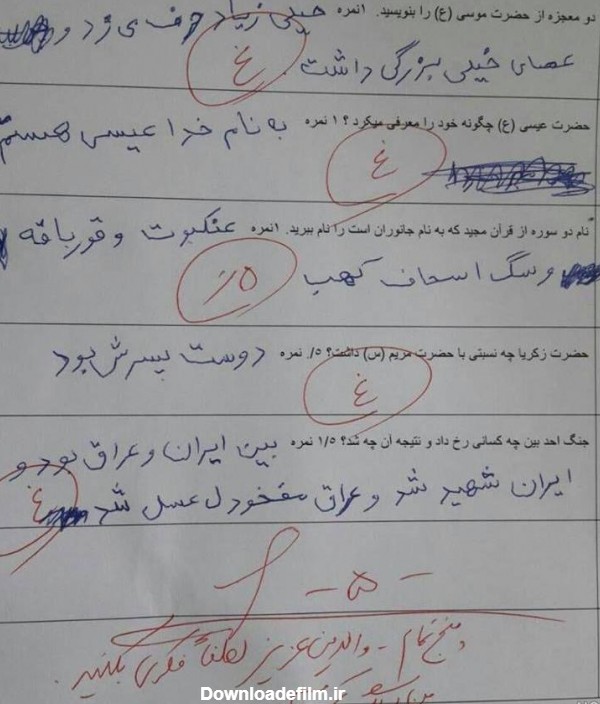 دو معجزه از حضرت موسی (ع) را بنویسید. ۱نمره خیلی زیاد حرف می زد و
عصای خیلی بزرگی داشت. غ
حضرت عیسی (ع) چگونه خود را معرفی میکرد ؟ ۱ نمره به نام خدا عیسی هستم
غ
نام دو سوره از قرآن مجید که به نام جانوران است را نام ببرید. ۱نمره عنکبوت و قورباقه
و سگ اسحاف کهب ۵٪
حضرت زکریا چه نسبتی با حضرت مریم (س) داشت؟ ۵/. نمره دوست پسرش بود
غ
جنگ احد بین چه کسانی رخ داد و نتیجه آن چه شد؟ ۱/۵ نمره بین ایران و عراق بود و
ایران شهید شد و عراق مفخودل عسل شد غ
- ۵ -
پنج تمام - والدین عزیز لطفاً فکری بکنید.
Downloadefilm.ir